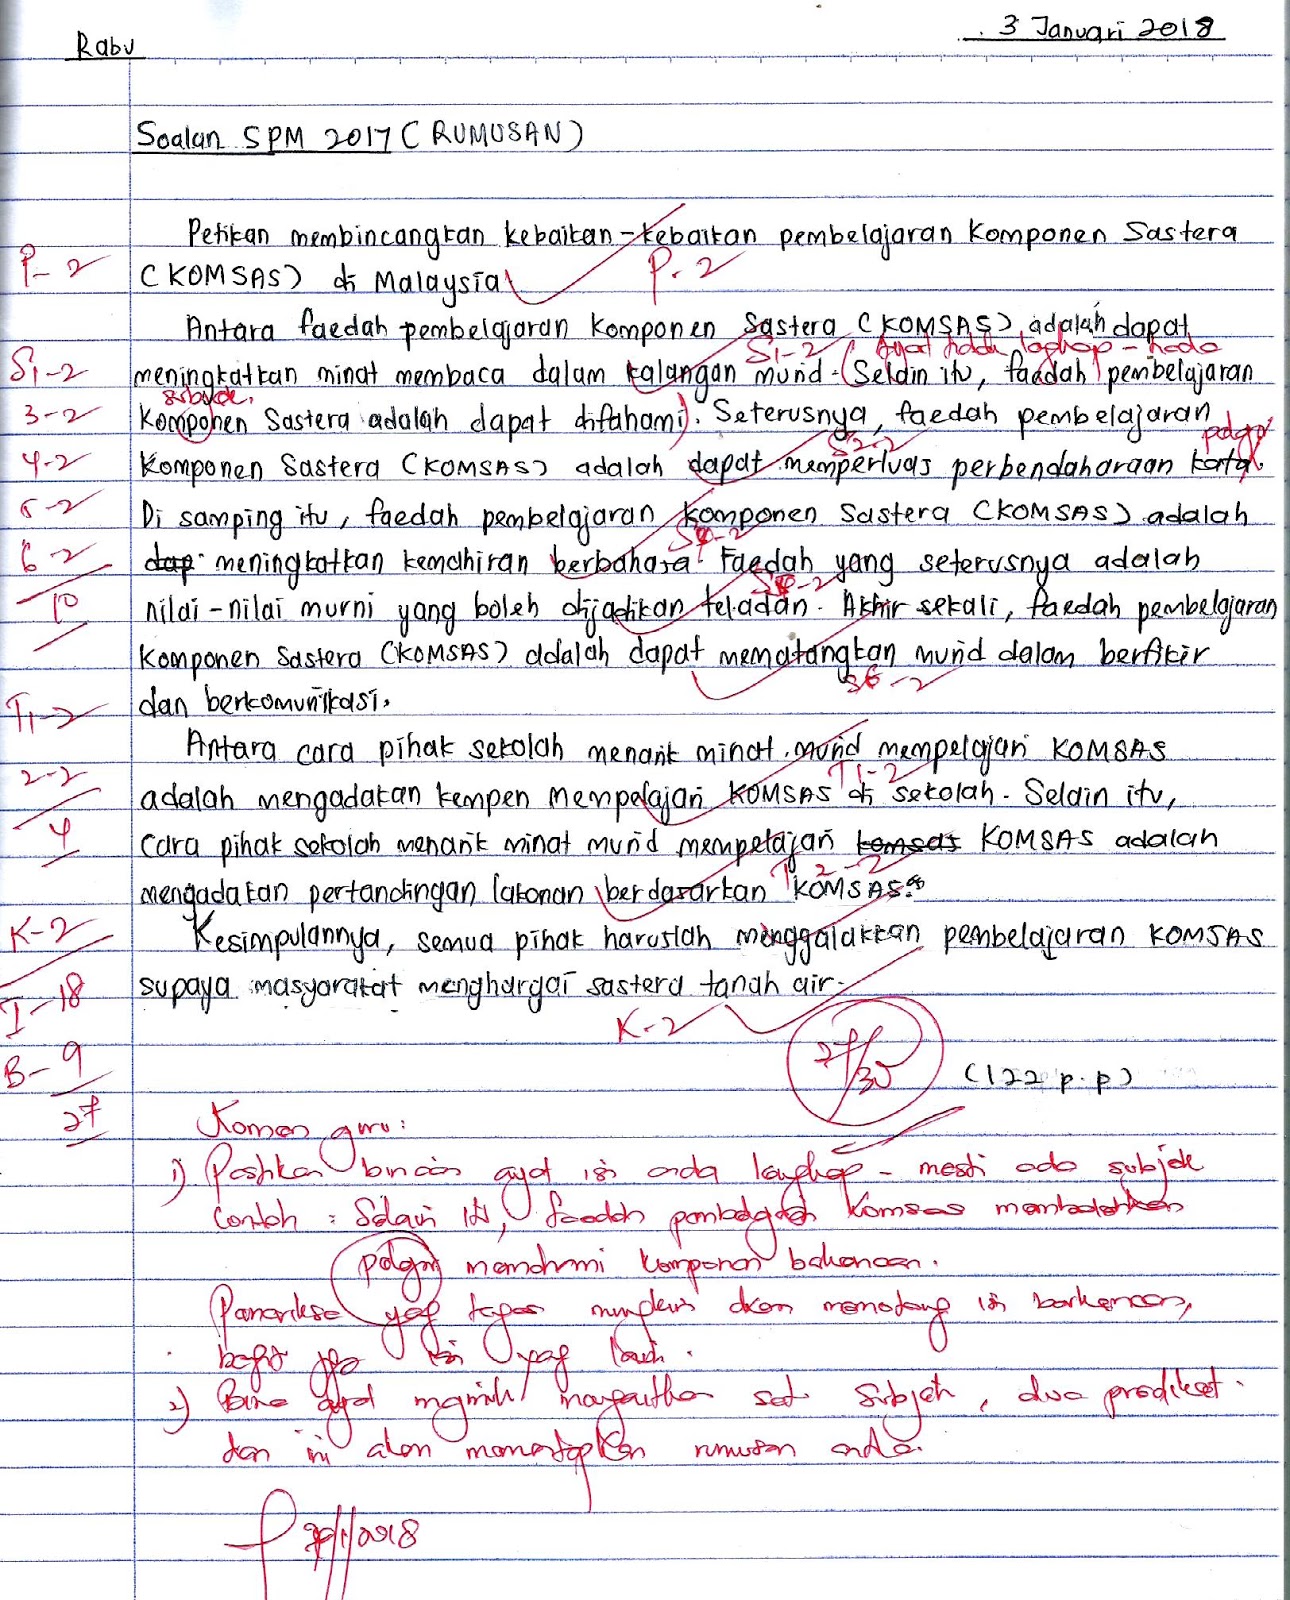 Rabu
3 Januari 2018
Soalan SPM 2017 (RUMUSAN)
Petikan membincangkan kebaikan-kebaikan pembelajaran Komponen Sastera
P-2
P-2
(KOMSAS) di Malaysia
Antara faedah pembelajaran Komponen Sastera (KOMSAS) adalah dapat
S1-2 (Ayat tidak lengkap - tiada
S1-2
meningkatkan minat membaca dalam kalangan murid. Selain itu, faedah pembelajaran
subjek.
3-2
Komponen Sastera adalah dapat difahami). Seterusnya, faedah pembelajaran
S2-2 pelajar
4-2
Komponen Sastera (KOMSAS) adalah dapat memperluas perbendaharaan kata.
5-2
Di samping itu, faedah pembelajaran Komponen Sastera (KOMSAS) adalah
6-2
dap meningkatkan kemahiran berbahasa. Faedah yang seterusnya adalah
10
nilai-nilai murni yang boleh dijadikan teladan. Akhir sekali, faedah pembelajaran
Komponen Sastera (KOMSAS) adalah dapat mematangkan murid dalam berfikir
S6-2
T1-2
dan berkomunikasi.
Antara cara pihak sekolah menarik minat murid mempelajari KOMSAS
T1-2
2-2
adalah mengadakan kempen mempelajari KOMSAS di sekolah. Selain itu,
4
cara pihak sekolah menarik minat murid mempelajari komsas KOMSAS adalah
T2-2
mengadakan pertandingan lakonan berdasarkan KOMSAS.
K-2
Kesimpulannya, semua pihak haruslah menggalakkan pembelajaran KOMSAS
I-18
supaya masyarakat menghargai sastera tanah air.
K-2
27/30
B-9
(122 p.p)
27
Komen guru:
1) Pastikan binaan ayat isi anda lengkap - mesti ada subjek
Contoh : Selain itu, faedah pembelajaran Komsas membolehkan
pelajar memahami komponen bahasa.
Pemeriksa yag tegas mungkin akan memotong isi berkenaan,
begitu juga isi yag lain.
2) Bina ayat majmuk / menggunakan satu subjek, dua predikat.
dan ini akan memantapkan rumusan anda.
/1/2018